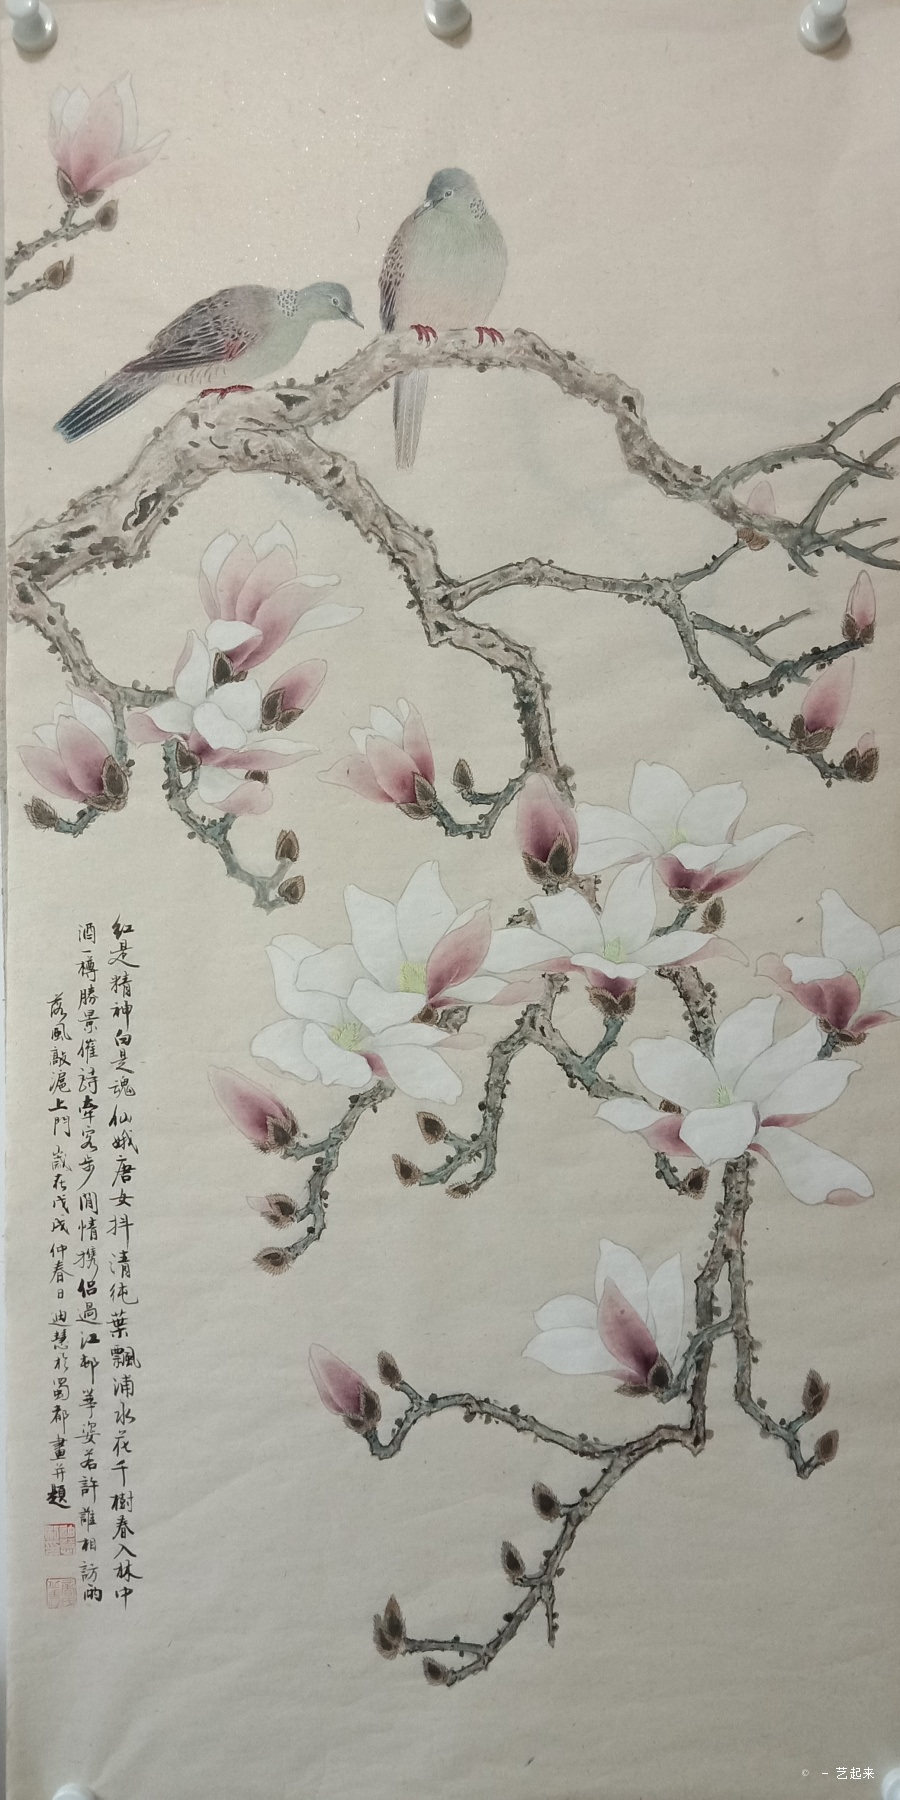 紅是精神白是魂仙娥唐女抖清純葉飄浦水花千樹春入林中
酒一樽勝景催詩牽客步閒情携侶過江邨華姿若許誰相訪雨
落風敲滬上門 歲在戊戌仲春日迪慧於蜀都畫并題
© - 艺起来